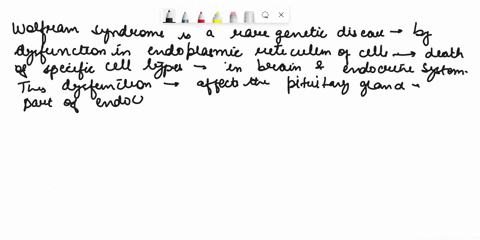 Wolfram syndrome is a rare genetic disease → by
dysfunction in endoplasmic reticulum of cells → death
of specific cell types → in brain & endocrine system.
This dysfunction → affects the pituitary gland -
part of endoc